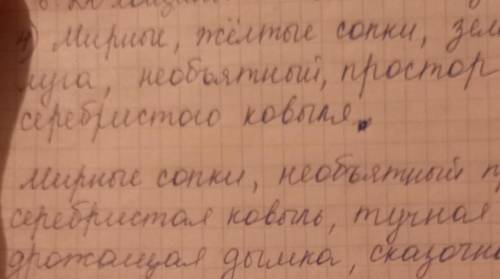 4) Мирные, жёлтые сопки,
луга, необъятный, простор
серебристого ковыля.
Мирные сопки, необъятный
серебристая ковыль, тучная
дрожащая дымка,